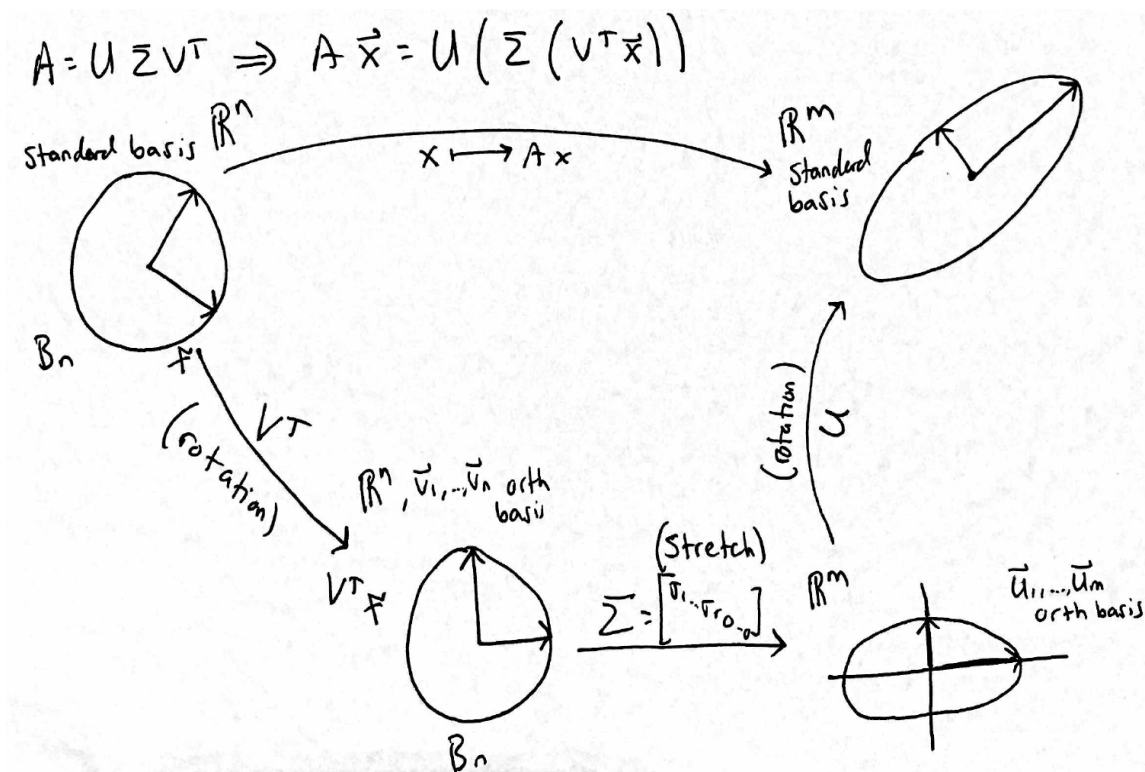 A = U Σ Vᵀ ⇒ A x⃗ = U ( Σ ( Vᵀ x⃗ ) )
ℝⁿ
Standard basis
x ↦ A x
ℝᵐ
Standard
basis
Bₙ
x⃗
Vᵀ
(rotation)
ℝⁿ, v⃗₁,...,v⃗ₙ orth
basis
Vᵀ x⃗
Bₙ
(Stretch)
Σ = [σ₁...σᵣ 0...0]
(rotation)
U
ℝᵐ
u⃗₁,...,u⃗ₘ
orth basis